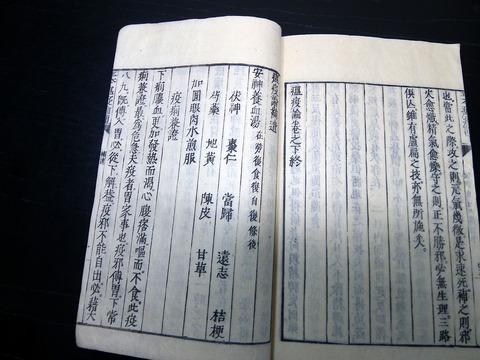 也當此之際攻之則元氣幾微是求速死補之則邪
火愈熾精氣愈爍守之則正不勝邪必無生理三路
俱亡雖有盧扁之技亦無所施矣
瘟疫論卷之下終
瘟疫論補遺
安神養血湯 在勞復食復自復條後
茯神 棗仁 當歸 遠志 桔梗
芍藥 地黃 陳皮 甘草
加圓眼肉水煎服
疫痢兼證
下痢膿血更加發熱而渴心腹痞滿嘔而不食此疫
痢兼證最為危急夫疫者胃家事也疫邪傳胃下常
八九既傳入胃必從下解葢疫邪不能自出必藉大